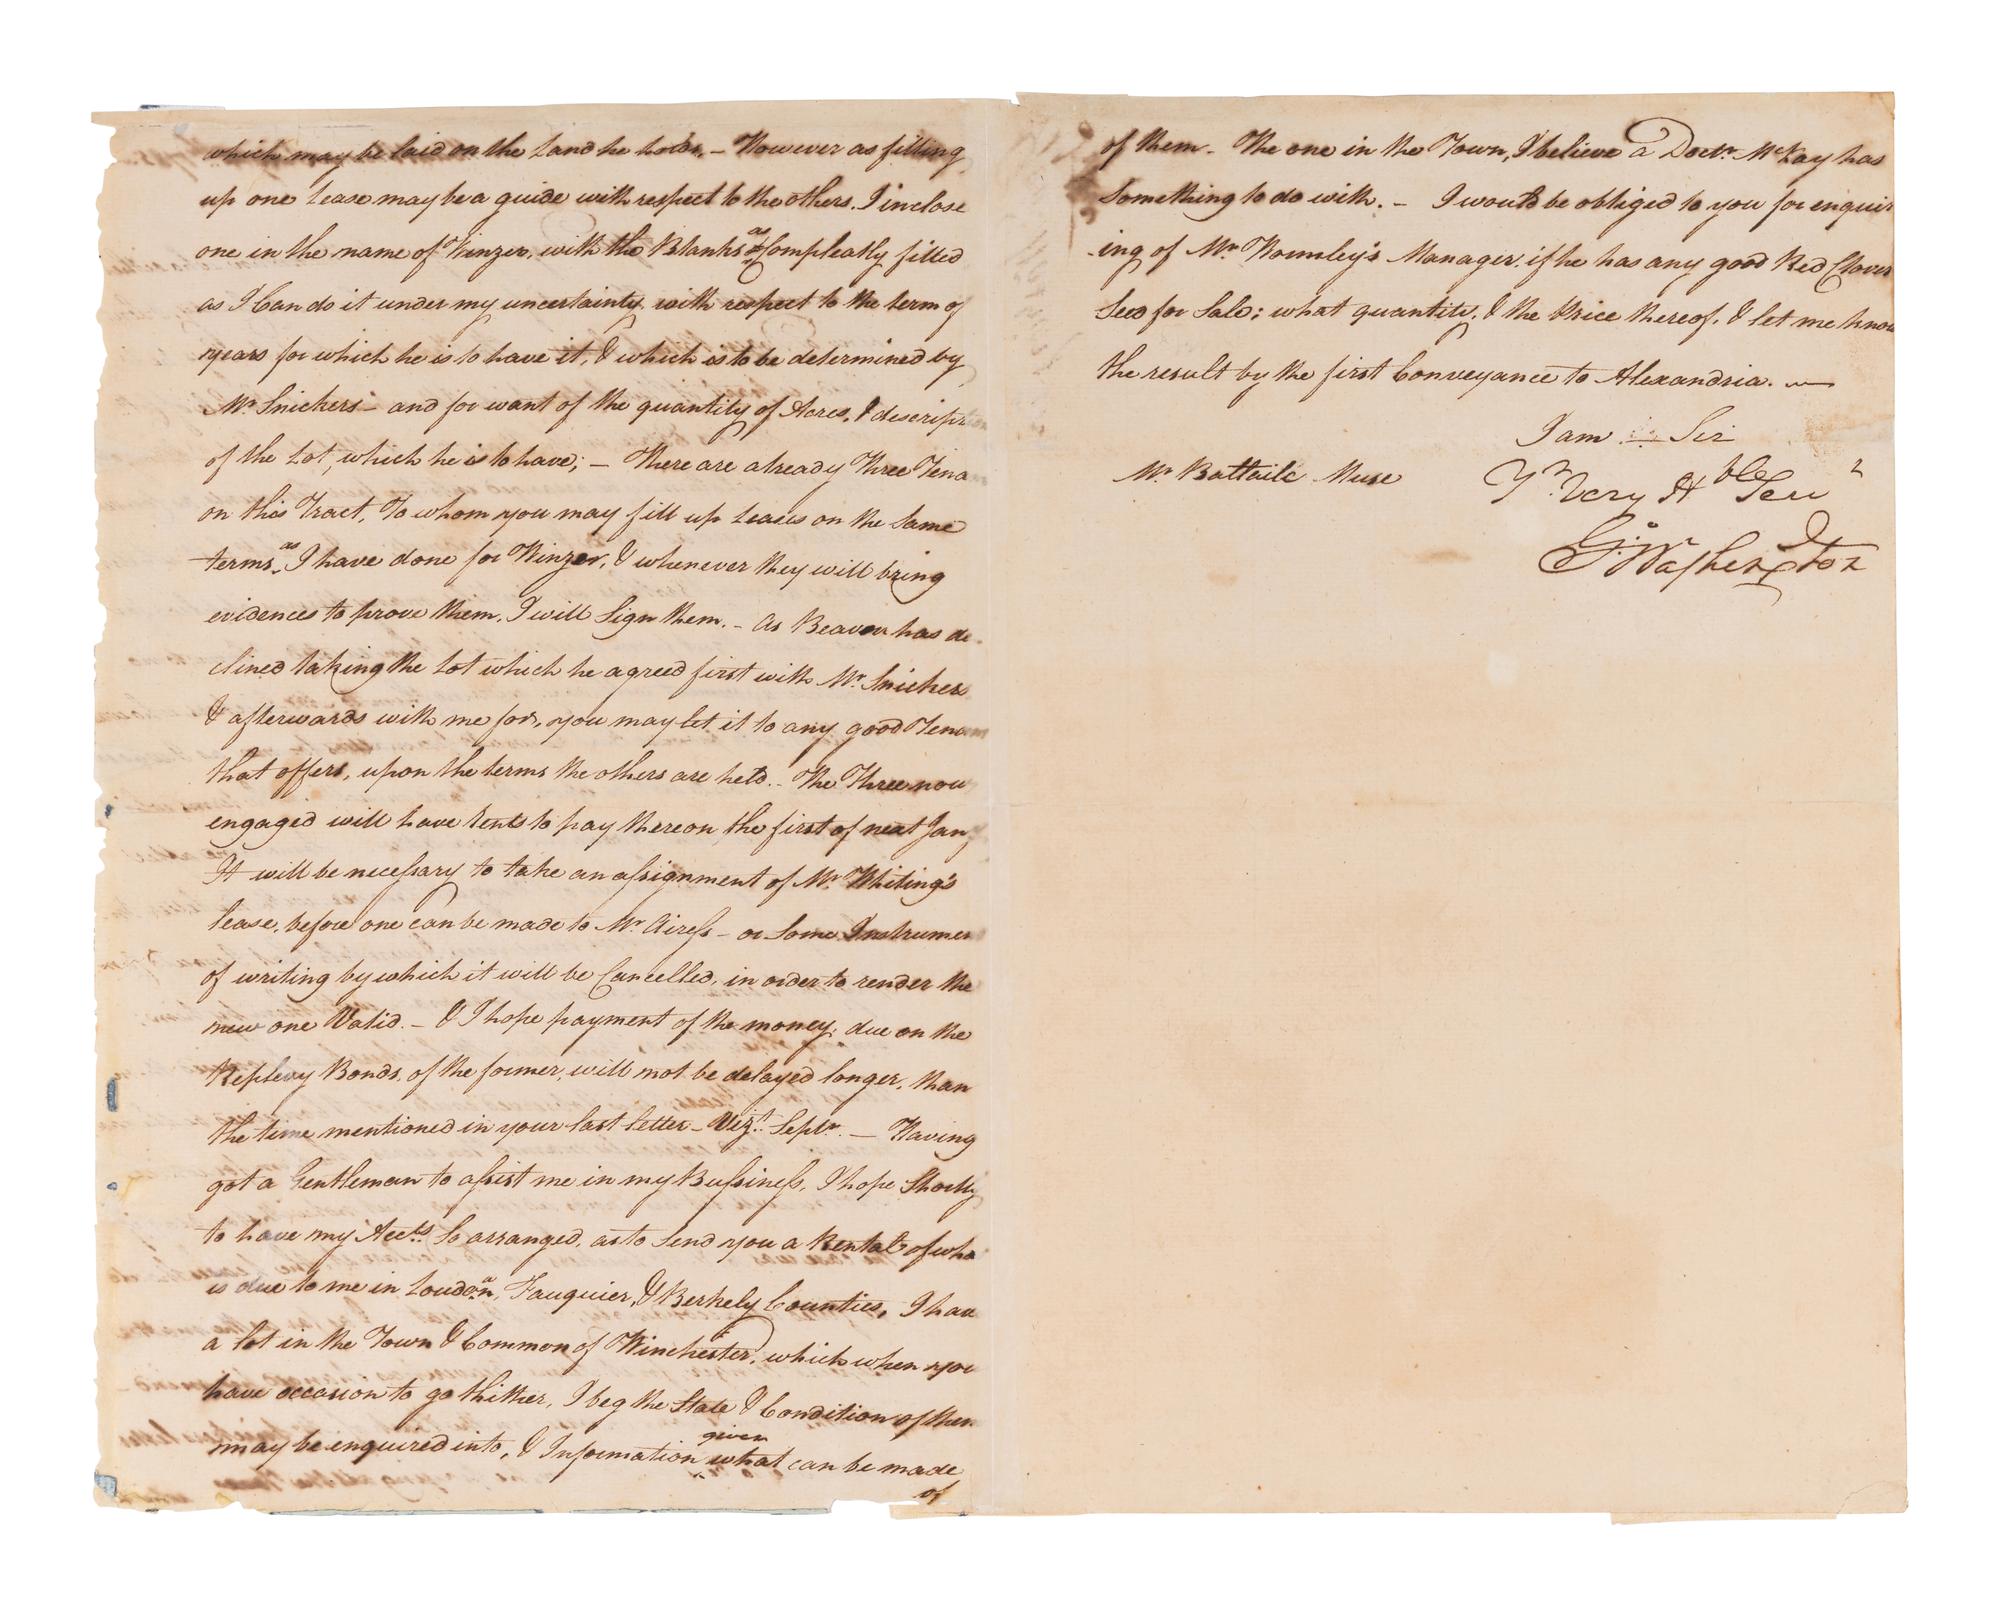 which may be laid on the Land he holds. – However as filling
up one Lease may be a guide with respect to the others. I inclose
one in the name of Winzer, with the Blanks as Compleatly filled
as I Can do it under my uncertainty with respect to the term of
years for which he is to have it, & which is to be determined by
Mr Snickers – and for want of the quantity of Acres, & descript
of the Lot, which he is to have; – there are already Three Tena
on this Tract, To whom you may fill up Leases on the same
terms as I have done for Winzer, & whenever they will bring
evidences to prove them, I will Sign them. – As Beaver has de-
clined taking the Lot which he agreed first with Mr Snickers
& afterwards with me for, you may let it to any good Tenan
that offers, upon the terms the others are held. – The Three now
engaged will have Rents to pay thereon the first of next Jany
It will be necessary to take an assignment of Mr Whiting's
lease, before one can be made to Mr Airess – or Some Instrumen
of writing by which it will be Cancelled, in order to render the
new one Valid. – & I hope payment of the money, due on the
Replevy Bonds, of the former, will not be delayed longer, than
the time mentioned in your last letter – Vizt. Septr. – Having
got a Gentleman to assist me in my Bussiness, I hope Shortly
to have my Accts. So arranged, as to Send you a Rental of wha
is due to me in Loudoun, Fauquier, & Berkely Counties, I hav
a lot in the Town & Common of Winchester, which when you
have occasion to go thither, I beg the State & Condition of them
may be enquired into, & Information given what can be made
of
of them – The one in the Town, I believe a Doctr. McKay has
Something to do with. – I would be obliged to you for enquir
ing of Mr Wormley's Manager if he has any good Red Clover
Seed for Sale; what quantity, & the Price thereof, & let me know
the result by the first Conveyance to Alexandria. –
I am – Sir
Mr. Battaile Muse
Yr. Very Hble Servt
Go: Washington